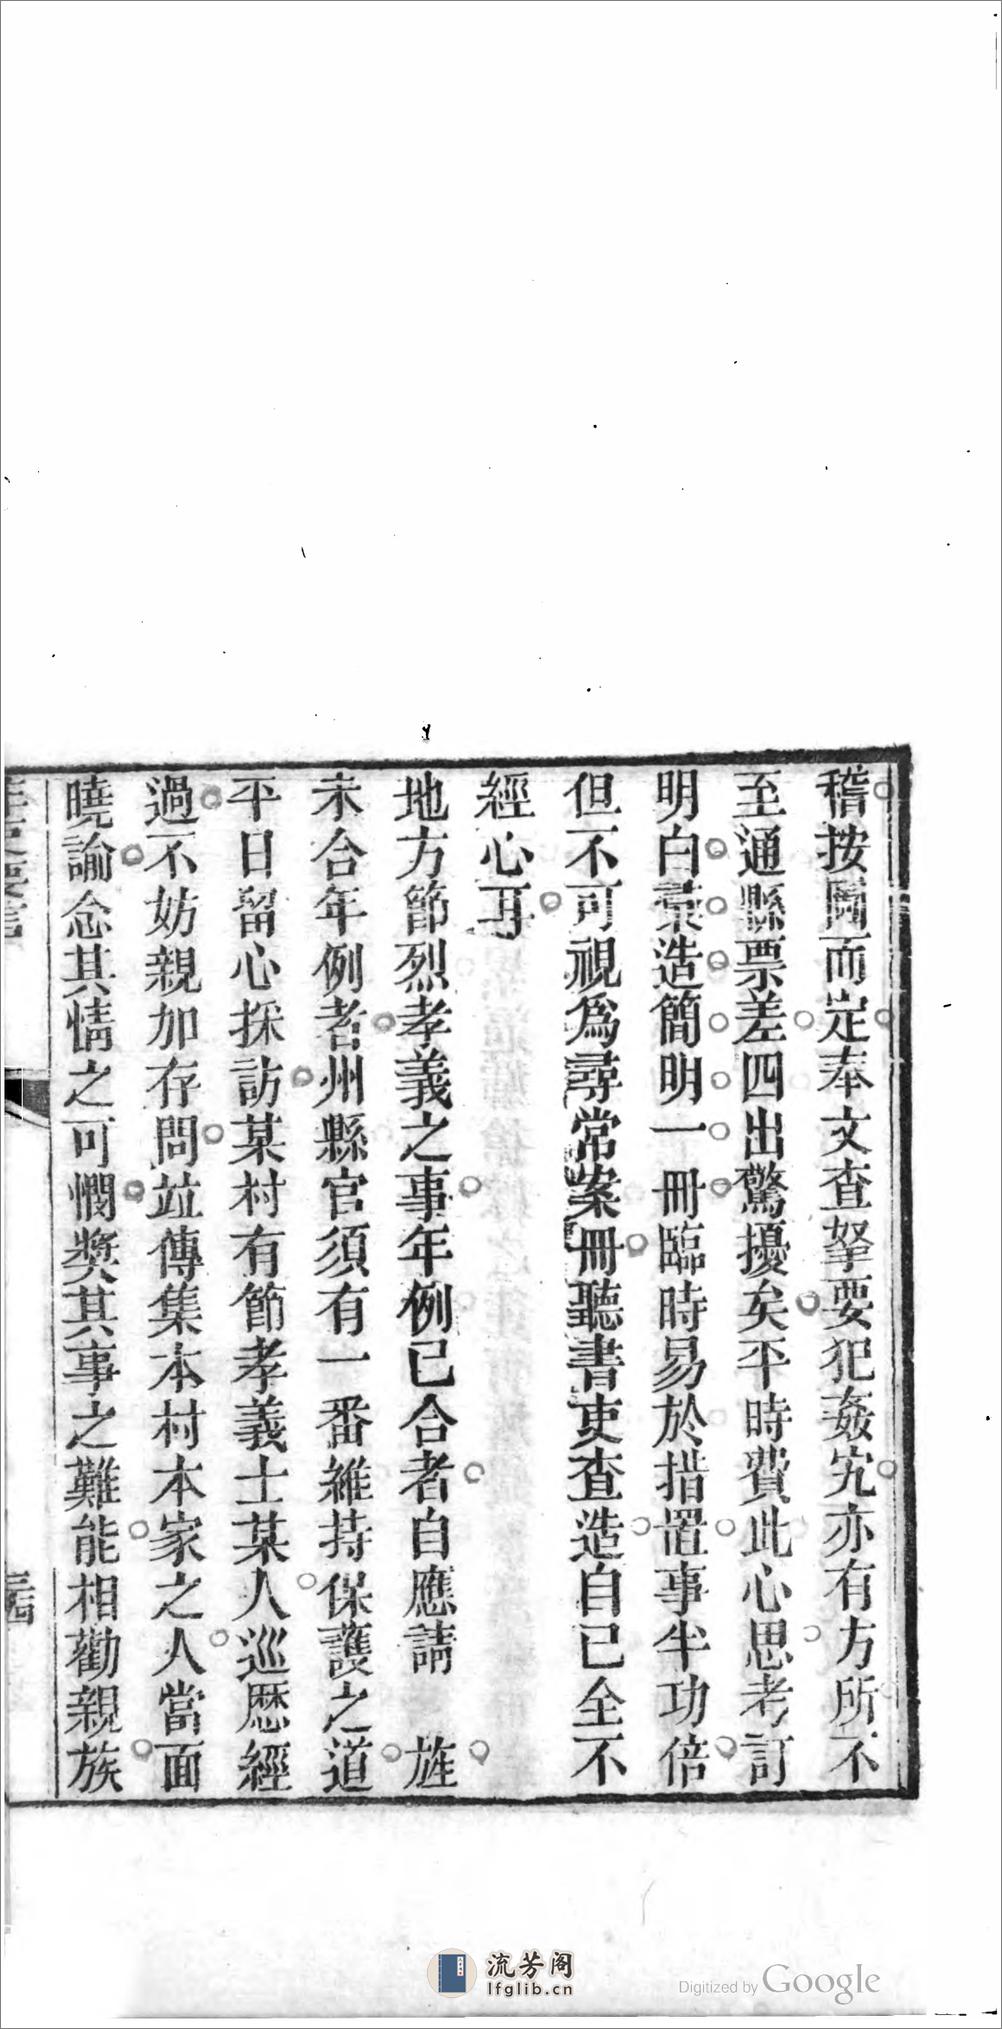 稽按圖而定奉文查拏要犯姦宄亦有方所不
至通縣票差四出驚擾矣平時費此心思考訂
明白彚造簡明一冊臨時易於措置事半功倍
但不可視爲尋常案冊聽書吏查造自己全不
經心耳
地方節烈孝義之事年例已合者自應請 旌
未合年例者州縣官須有一番維持保護之道
平日留心採訪某村有節孝義士某人巡歷經
過不妨親加存問竝傳集本村本家之人當面
曉諭念其情之可憫獎其事之難能相勸親族
流芳阁
lfglib.cn
Digitized by Google